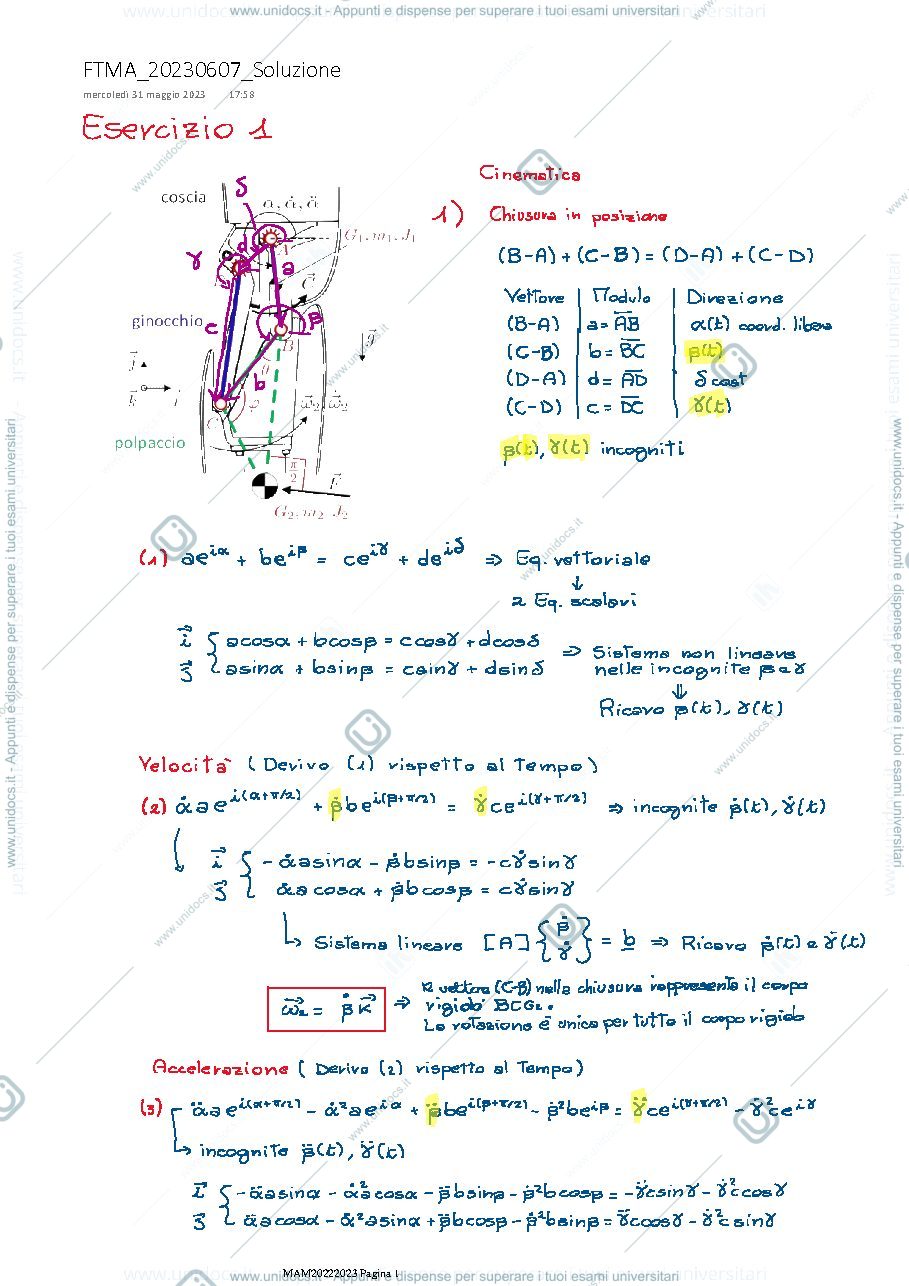 www.unidocs.it - Appunti e dispense per superare i tuoi esami universitari
FTMA_20230607_Soluzione
mercoledì 31 maggio 2023 17:58
Esercizio 1
Cinematica
1) Chiusura in posizione
(B-A) + (C-B) = (D-A) + (C-D)
Vettore | Modulo | Direzione
(B-A) | a = AB̅ | α(t) coord. libera
(C-B) | b = B̅C̅ | β(t)
(D-A) | d = A̅D̅ | δ cost
(C-D) | c = D̅C̅ | γ(t)
β(t), γ(t) incogniti
coscia
δ
α, α̇, α̈
G₁, m₁, J₁
A
d
γ
D
a
C⃗
ginocchio
c
β
B
g⃗
j⃗
k⃗
i⃗
b
θ
C
φ
ω⃗₂, ω̇⃗₂
polpaccio
π/2
F⃗
G₂, m₂, J₂
(1) ae^{iα} + be^{iβ} = ce^{iγ} + de^{iδ} ⇒ Eq. vettoriale
↓
2 Eq. scalari
i⃗ { acosα + bcosβ = ccosγ + dcosδ
j⃗ { asinα + bsinβ = csinγ + dsinδ
⇒ Sistema non lineare
nelle incognite β e γ
⇓
Ricavo β(t), γ(t)
Velocità ( Derivo (1) rispetto al Tempo )
(2) α̇ae^{i(α+π/2)} + β̇be^{i(β+π/2)} = γ̇ce^{i(γ+π/2)} ⇒ incognite β̇(t), γ̇(t)
i⃗ { -α̇asinα - β̇bsinβ = -cγ̇sinγ
j⃗ { α̇acosα + β̇bcosβ = cγ̇sinγ
↳ Sistema lineare [A] {β̇ γ̇} = b ⇒ Ricavo β̇(t) e γ̇(t)
ω⃗₂ = β̇ k⃗ ⇒ Il vettore (C-B) nella chiusura rappresenta il corpo
rigido BCG₂.
La rotazione è unica per tutto il corpo rigido
Accelerazione ( Derivo (2) rispetto al Tempo )
(3) α̈ae^{i(α+π/2)} - α̇²ae^{iα} + β̈be^{i(β+π/2)} - β̇²be^{iβ} = γ̈ce^{i(γ+π/2)} - γ̇²ce^{iγ}
↳ incognite β̈(t), γ̈(t)
i⃗ { -α̈asinα - α̇²acosα - β̈bsinβ - β̇²bcosβ = -γ̈csinγ - γ̇²ccosγ
j⃗ { α̈acosα - α̇²asinα + β̈bcosβ - β̇²bsinβ = γ̈ccosγ - γ̇²csinγ
MAM20222023 Pagina 1
www.unidocs.it - Appunti e dispense per superare i tuoi esami universitari